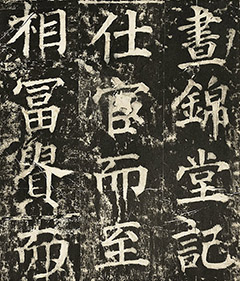 晝錦堂記
仕宦而至
相冨貴而